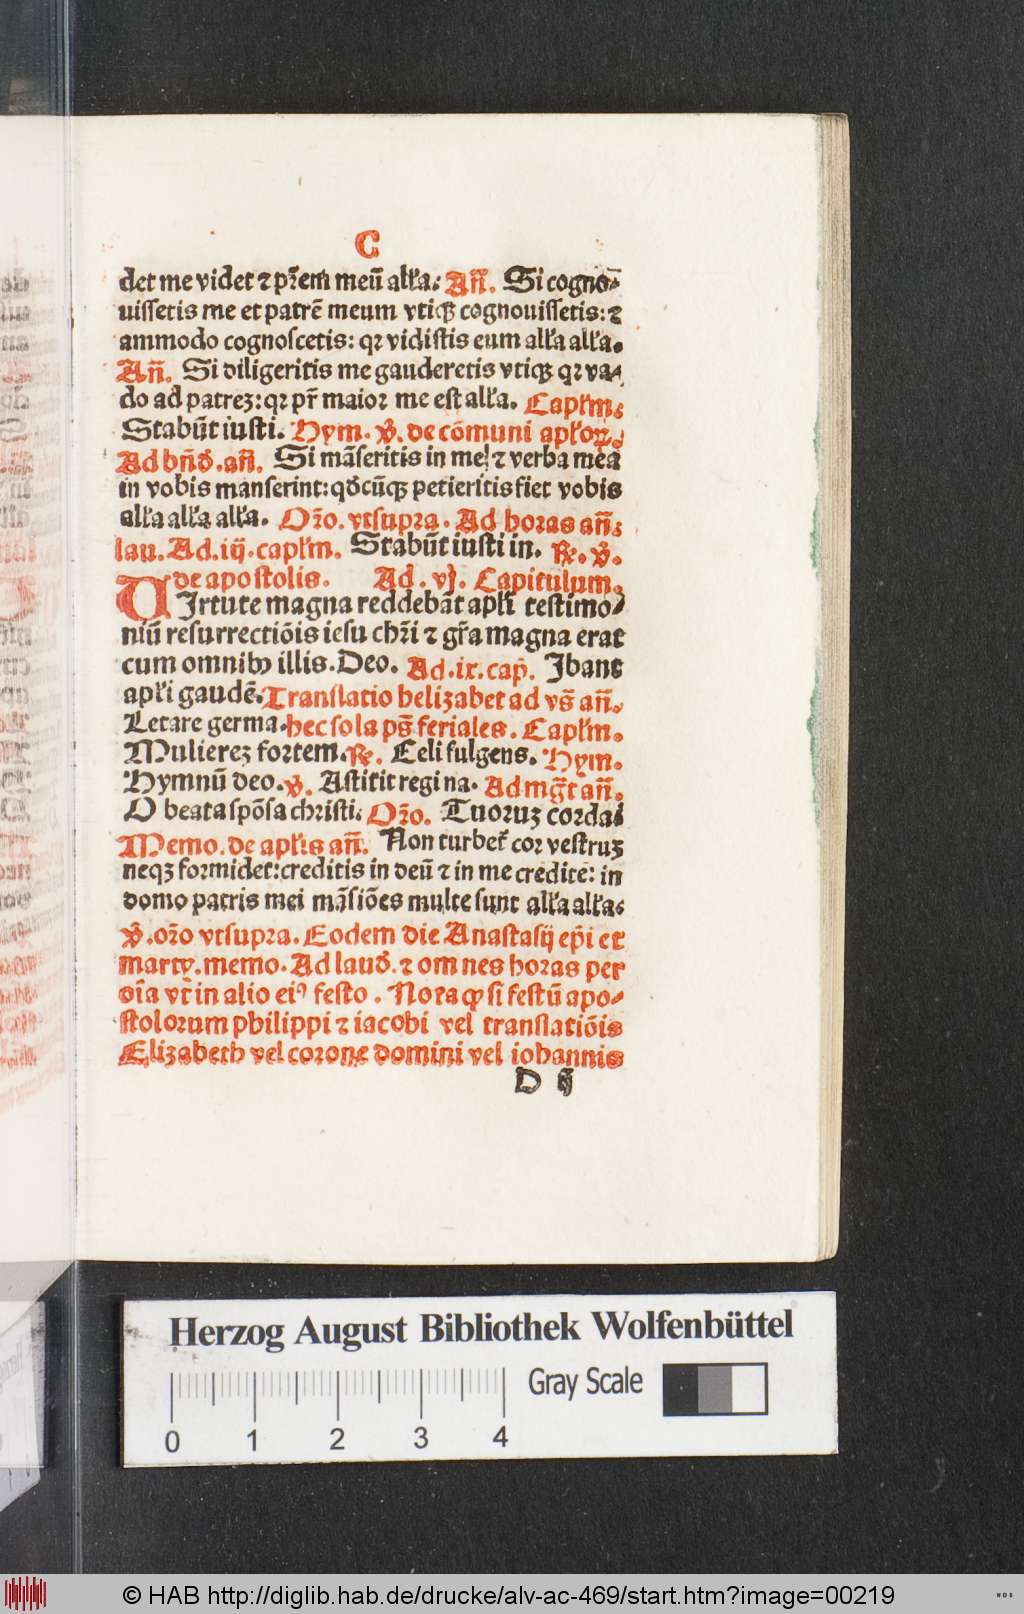 C
det me videt ⁊ pr̃em meū alľa. Añ. Si cogno⸗
uissetis me et patrẽ meum vtiqꝫ cognouissetis: ⁊
ammodo cognoscetis: qꝛ vidistis eum alľa alľa.
Añ. Si diligeritis me gauderetis vtiqꝫ qꝛ va⸗
do ad patreꝫ: qꝛ pr̃ maior me est alľa. Capľm.
Stabūt iusti. Hym. v̄. de cōmuni apľoꝝ.
Ad bñd̄. añ. Si mãseritis in me ⁊ verba mea
in vobis manserint: qd̄cūqꝫ petieritis fiet vobis
alľa alľa alľa. Oŕo. vtsupra. Ad horas añ.
lau. Ad. iij. capľm. Stabūt iusti in. ℟. v̄.
de apostolis. Ad. vj. Capitulum.
VIrtute magna reddebãt apľi testimo⸗
niū resurrectiõis iesu chr̃i ⁊ gr̃a magna erat
cum omnibꝰ illis. Deo. Ad. ix. cap̃. Ibant
apľi gaudẽ. Translatio helizabet ad vs̃ añ.
Letare germa. hec sola ps̃ feriales. Capľm.
Muliereꝫ fortem. ℟. Celi fulgens. Hym.
Hymnū deo. v̄. Astitit regina. Ad mg̃t añ.
O beata spõsa christi. Oŕo. Tuoruꝫ corda
Memo. de apľis añ. Non turbet̃ cor vestruꝫ
neqꝫ formidet: creditis in deū ⁊ in me creditẽ: in
domo patris mei mãsiões multe sunt alľa alľa.
v̄. oŕo vtsupra. Eodem die Anastasij ep̃i et
marty. memo. Ad laud̄. ⁊ omnes horas per
oĩa vt̃ in alio eiꝰ festo. Nota ꝙ si festū apo⸗
stolorum philippi ⁊ iacobi vel translatiõis
Elizabeth vel corone domini vel iohannis
D ij
Herzog August Bibliothek Wolfenbüttel
Gray Scale
0 1 2 3 4
© HAB http://diglib.hab.de/drucke/alv-ac-469/start.htm?image=00219